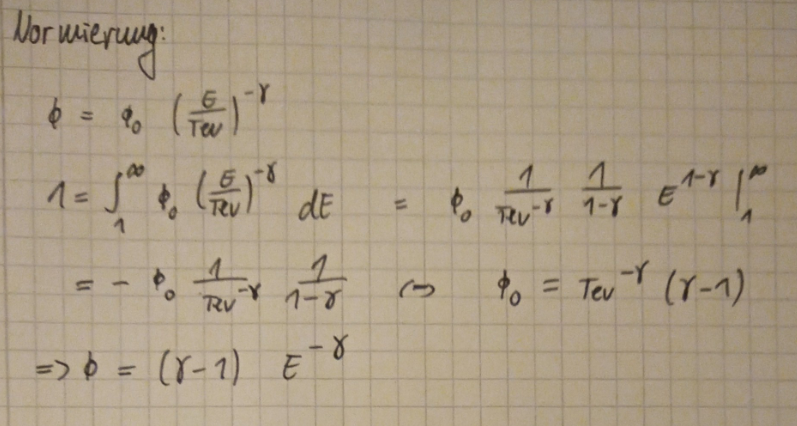 Normierung:
ϕ = ϕ₀ (E/TeV)^-γ
1 = ∫₁^∞ ϕ₀ (E/TeV)^-γ dE = ϕ₀ 1/TeV^-γ 1/(1-γ) E^(1-γ) |₁^∞
= - ϕ₀ 1/TeV^-γ 1/(1-γ) ⇔ ϕ₀ = TeV^-γ (γ-1)
=> ϕ = (γ-1) E^-γ